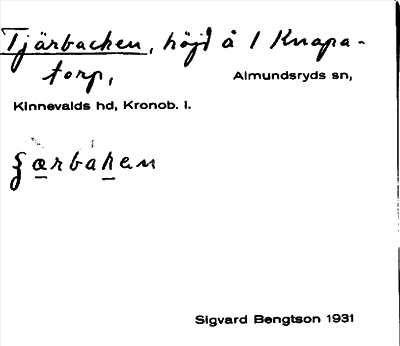 Tjärbacken, höjd å 1 Knapa-
torp,
Almundsryds sn,
Kinnevalds hd, Kronob. l.
Sigvard Bengtson 1931